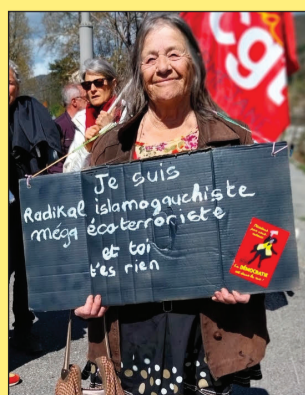 cgt
Je suis
Radikal islamogauchiste
méga écoterroriste
et toi
t'es rien
la DÉMOCRATIE